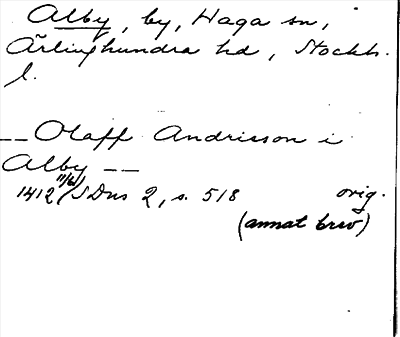 Alby, by, Haga sn,
Ärlinghundra hd, Stockh.
l.
__ Olaff Andrisson i
Alby __
1412 11/6 SDns 2, s. 518 orig.
(annat brev)